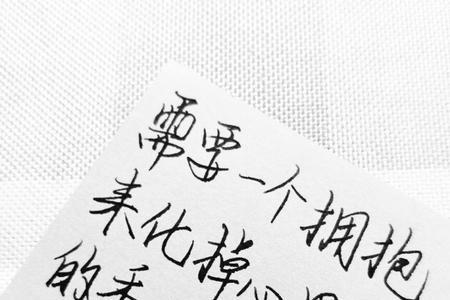 需要一个拥抱
来化掉心
的